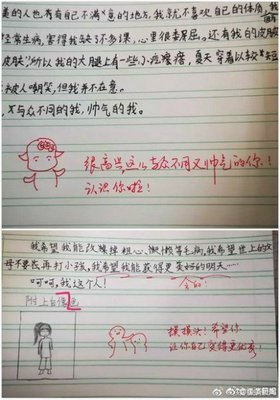 美的人也有自己不满意的地方,我就不喜欢自己的体质,我
经常生病,害得我缺了不多课,心里很委屈。还有我的皮肤
皮肤,所以我的大腿上有一些小疙瘩,夏天穿着以较短
被人嘲笑,但我并不在意。
,与众不同的我,帅气的我。
很高兴,这么与众不同又帅气的你!
认识你啦!
我希望我能改掉粗心、懒散等毛病,我希望世上的父
母不要再打小孩,我希望我能获得更美好的明天……
会的!
呵呵,我这个人!
附上自画像
摸摸头!希望你
让你自己变得更优秀!